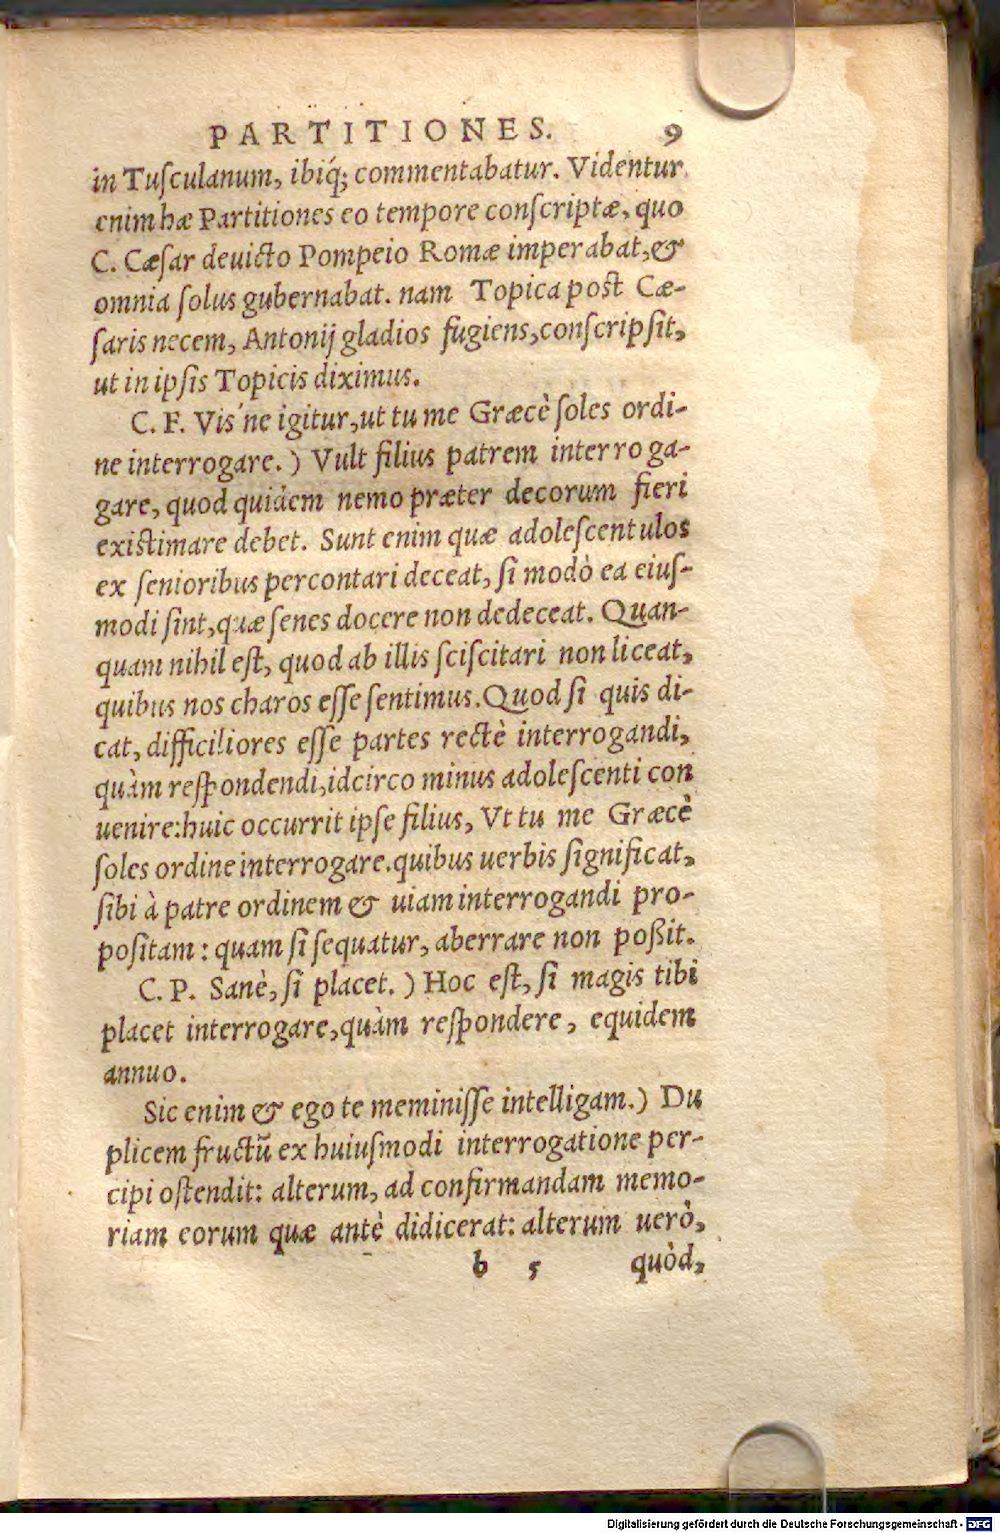 PARTITIONES. 9
in Tuſculanum, ibiq́; commentabatur. Videntur
enim hæ Partitiones eo tempore conſcriptæ, quo
C. Cæſar deuicto Pompeio Romæ imperabat, &
omnia ſolus gubernabat. nam Topica post Cæ-
ſaris necem, Antonij gladios fugiens, conſcripſit,
ut in ipſis Topicis diximus.
C. F. Vis'ne igitur, ut tu me Græcè ſoles ordi-
ne interrogare.) Vult filius patrem interroga-
gare, quod quidem nemo præter decorum fieri
existimare debet. Sunt enim quæ adoleſcentulos
ex ſenioribus percontari deceat, ſi modò ea eiuſ-
modi ſint, quæ ſenes docere non dedeceat. Quan-
quam nihil eſt, quod ab illis ſciſcitari non liceat,
quibus nos charos eſſe ſentimus. Quod ſi quis di-
cat, difficiliores eſſe partes rectè interrogandi,
quàm reſpondendi, idcirco minus adoleſcenti con
uenire: huic occurrit ipſe filius, Vt tu me Græcè
ſoles ordine interrogare. quibus uerbis ſignificat,
ſibi à patre ordinem & uiam interrogandi pro-
poſitam: quam ſi ſequatur, aberrare non poßit.
C. P. Sanè, ſi placet.) Hoc eſt, ſi magis tibi
placet interrogare, quàm reſpondere, equidem
annuo.
Sic enim & ego te meminiſſe intelligam.) Du
plicem fructũ ex huiuſmodi interrogatione per-
cipi oſtendit: alterum, ad confirmandam memo-
riam eorum quæ antè didicerat: alterum uerò,
b 5 quòd,
Digitalisierung gefördert durch die Deutsche Forschungsgemeinschaft - DFG